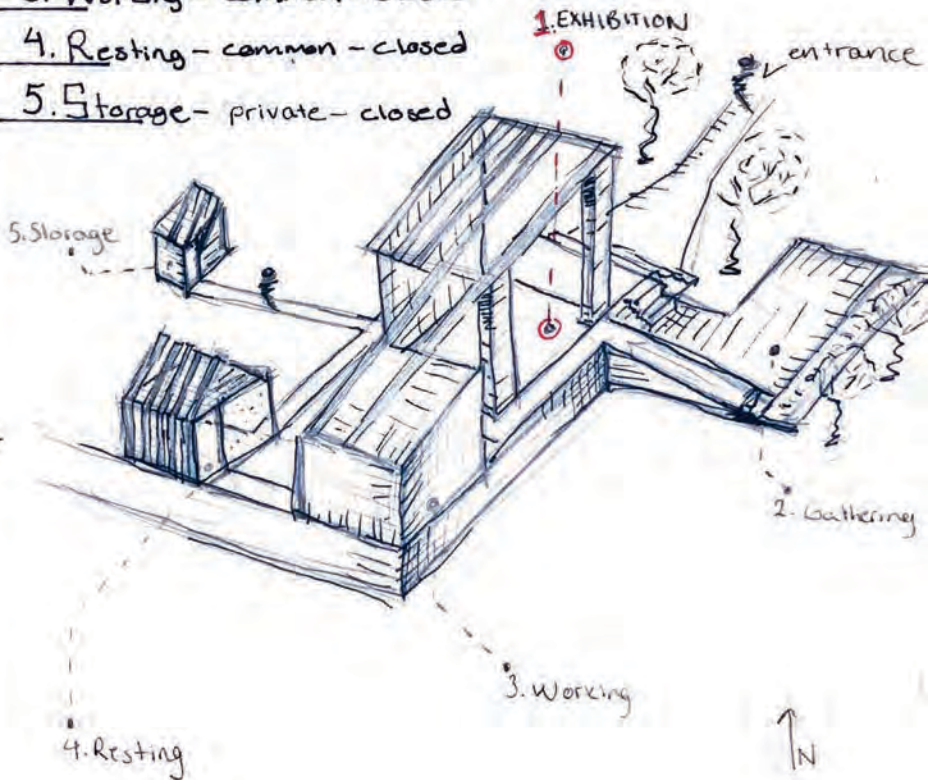 3. Working -
4. Resting - common - closed
5. Storage - private - closed
1. EXHIBITION
entrance
5. Storage
2. Gathering
3. Working
4. Resting
N